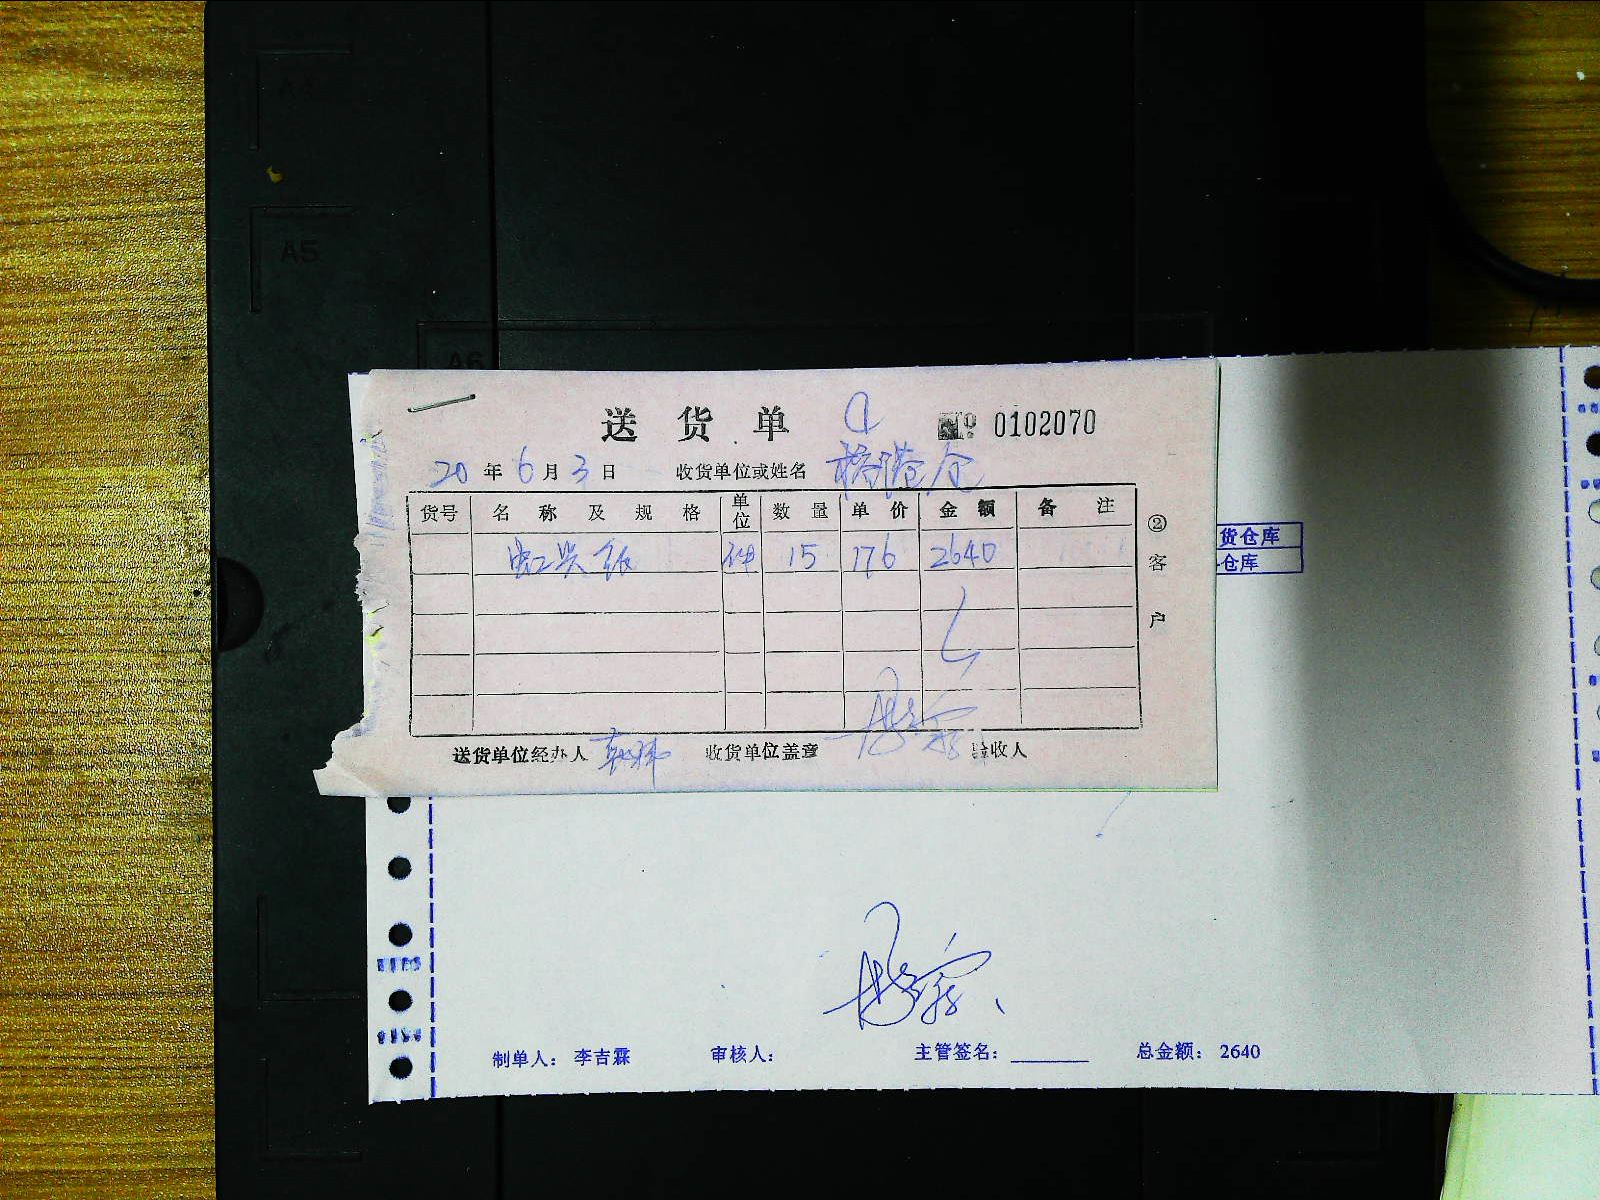 A5
A6
送货单 № 0102070
20年6月3日 收货单位或姓名
货号 名称及规格 单位 数量 单价 金额 备注
纸 件 15 176 2640
②客户
送货单位经办人 收货单位盖章 验收人
货仓库
仓库
制单人： 李吉霖 审核人： 主管签名： 总金额： 2640